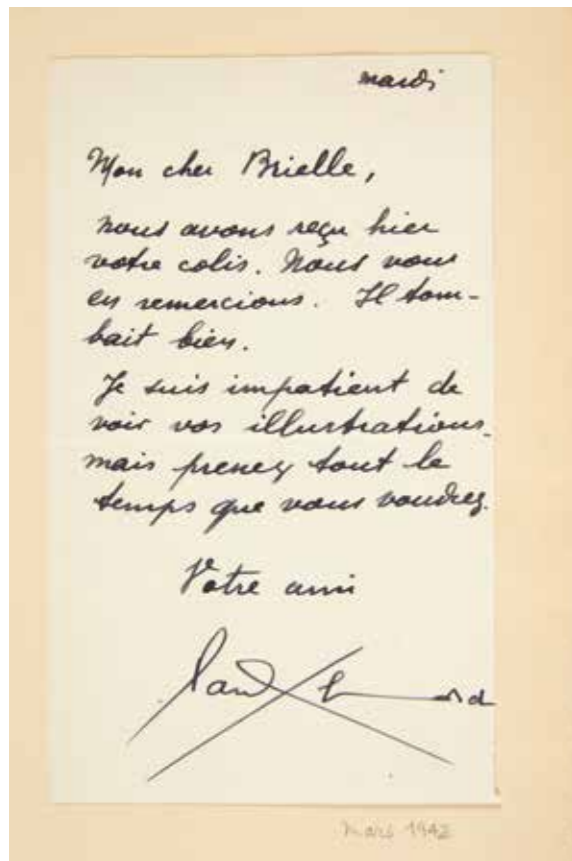 mardi
Mon cher Brielle,
nous avons reçu hier
votre colis. Nous vous
en remercions. Il tom-
bait bien.
Je suis impatient de
voir vos illustrations.
mais prenez tout le
temps que vous voudrez.
Votre ami
Paul Eluard
mars 1942